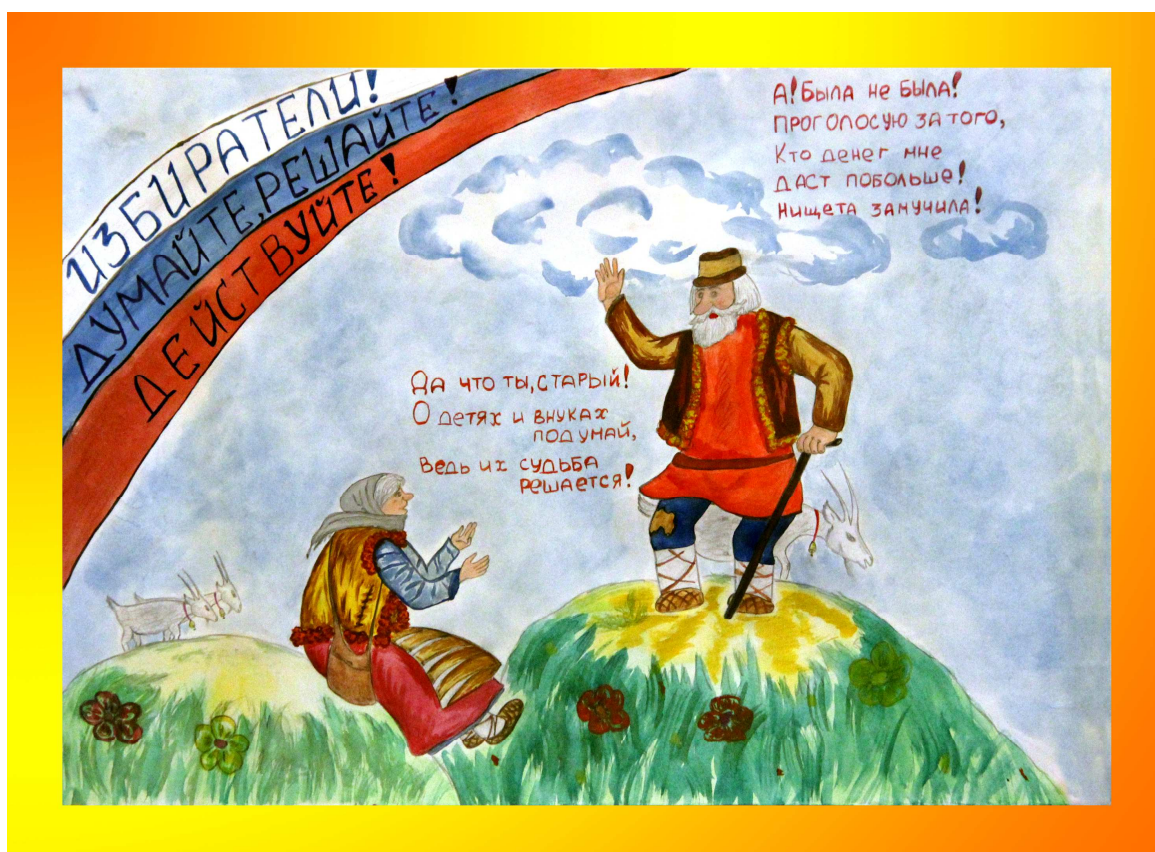 ИЗБИРАТЕЛИ!
ДУМАЙТЕ, РЕШАЙТЕ!
ДЕЙСТВУЙТЕ!
А! Была не была!
Проголосую за того,
Кто денег мне
даст побольше!
Нищета замучила!
Да что ты, старый!
О детях и внуках
подумай,
Ведь их судьба
решается!